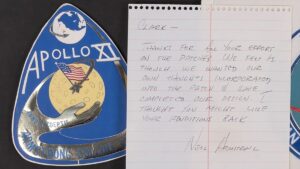 APOLLO XI
CLARK —
THANKS FOR ALL YOUR EFFORT
ON THE PATCHES. WE FELT AS
THOUGH WE WANTED OUR
OWN THOUGHTS INCORPORATED
INTO THE PATCH & HAVE
COMPLETED OUR DESIGN. I
THOUGHT YOU MIGHT LIKE
YOUR RENDITIONS BACK
NEIL ARMSTRONG